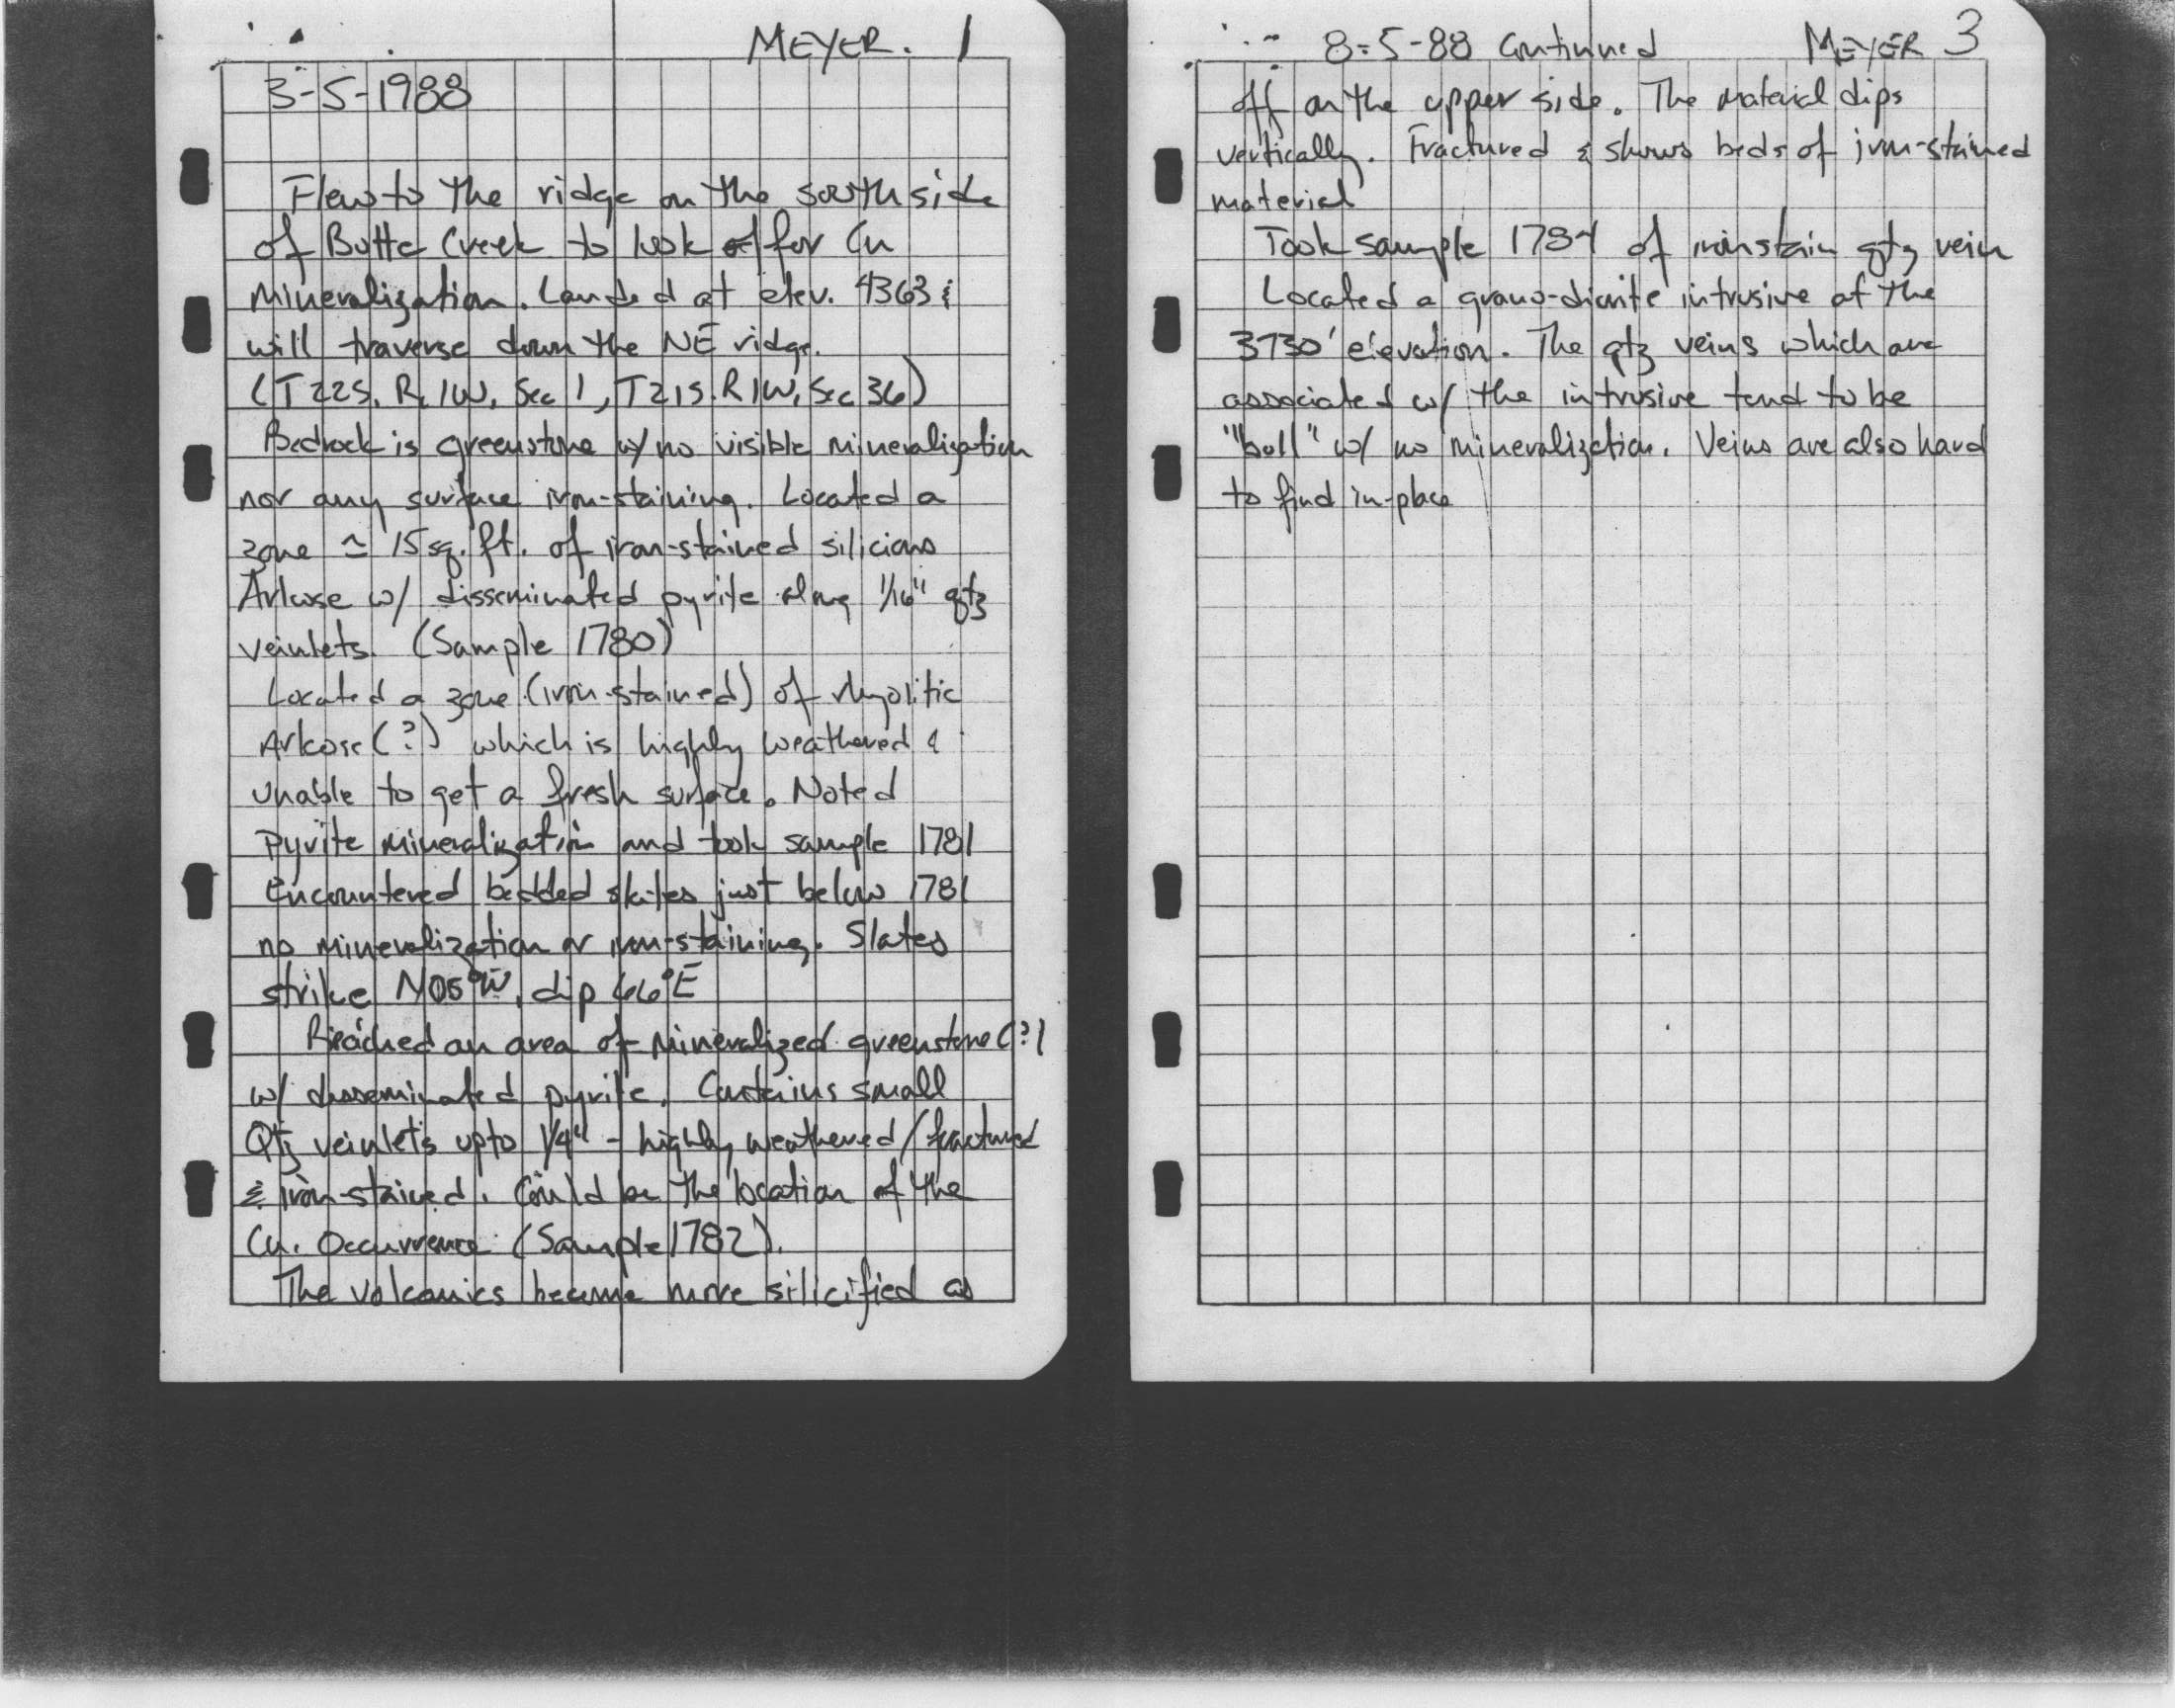 MEYER. 1
8-5-1988
Flew to the ridge on the south side
of Butte Creek to look for Cu
mineralization. Landed at elev. 4363 &
will traverse down the NE ridge.
(T22S, R1W, Sec 1, T21S. R1W, Sec 36)
Bedrock is greenstone w/ no visible mineralization
nor any surface iron-staining. Located a
zone ≃ 15 sq. ft. of iron-stained silicious
Arkose w/ disseminated pyrite along 1/16" qtz
veinlets. (Sample 1780)
Located a zone (iron-stained) of rhyolitic
Arkose (?) which is highly weathered &
unable to get a fresh surface. Noted
Pyrite mineralization and took sample 1781
Encountered bedded slates just below 1781
no mineralization or iron-staining. Slates
strike N05°W, dip 66°E
Reached an area of mineralized greenstone (?)
w/ disseminated pyrite. Contains small
Qtz veinlets upto 1/4" - highly weathered / fractured
& iron-stained. Could be the location of the
Cu. Occurrence (Sample 1782).
The volcanics become more silicified as
8-5-88 Continued MEYER 3
off on the upper side. The material dips
vertically. Fractured & shows beds of iron-stained
material
Took sample 1784 of ironstain qtz vein
Located a grano-diorite intrusive at the
3730' elevation. The qtz veins which are
associated w/ the intrusive tend to be
"bull" w/ no mineralization. Veins are also hard
to find in-place